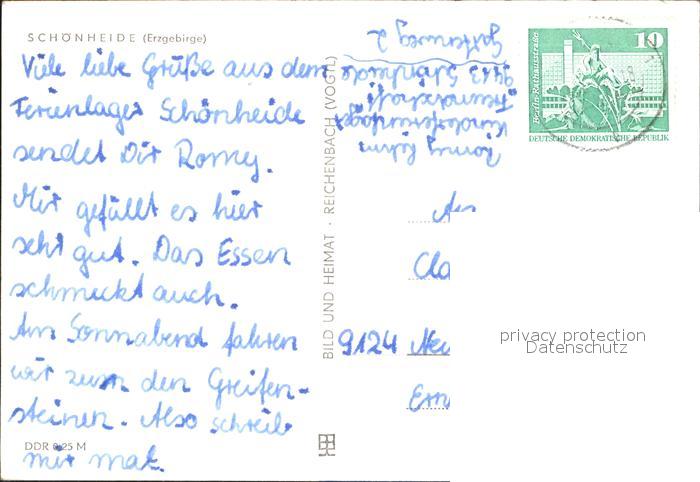 SCHÖNHEIDE (Erzgebirge)
Viele liebe Grüße aus dem
Ferienlager Schönheide
sendet Dir Romy.
Mir gefällt es hier
seht gut. Das Essen
schmeckt auch.
Am Sonnabend fahren
wir zum den Greifen-
steinen. Also schreib
mir mal.
DDR 0,25 M
BILD UND HEIMAT · REICHENBACH (VOGTL)
Romy
Kinderferienlager
"Freundschaft"
9413 Schönheide
Gartenweg 2
Berlin-Rathausstraße
10
DEUTSCHE DEMOKRATISCHE REPUBLIK
An
Cla
9124 Neu
Ern
privacy protection
Datenschutz